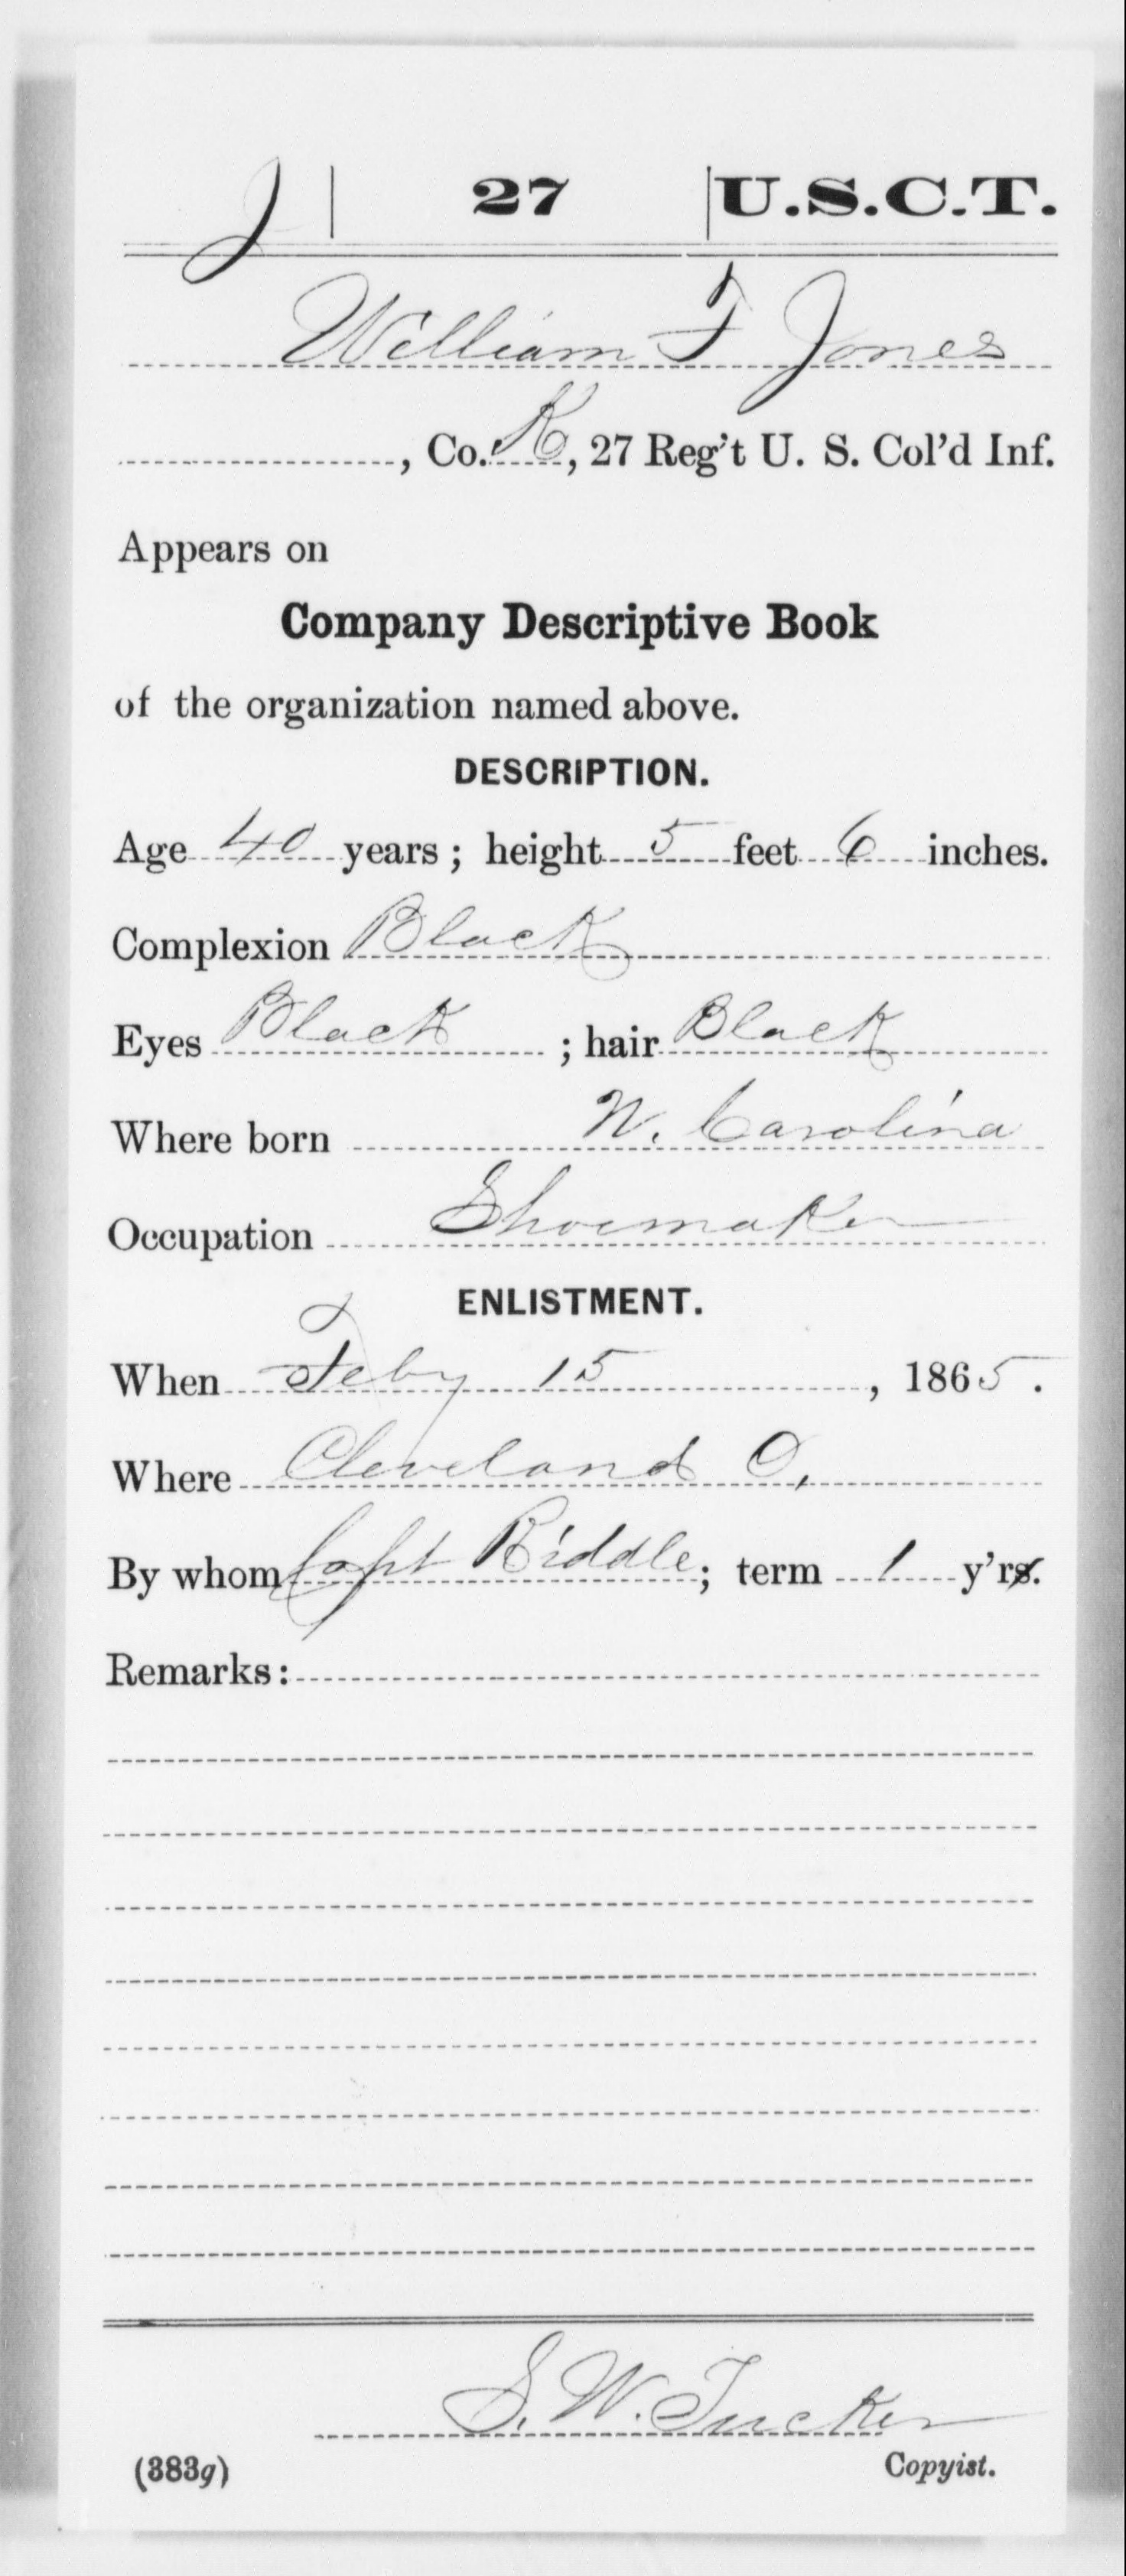 J | 27 | U.S.C.T.
William F Jones
, Co. K, 27 Reg't U. S. Col'd Inf.
Appears on
Company Descriptive Book
of the organization named above.
DESCRIPTION.
Age 40 years; height 5 feet 6 inches.
Complexion Black
Eyes Black ; hair Black
Where born N. Carolina
Occupation Shoemaker
ENLISTMENT.
When Feby 15, 1865.
Where Cleveland O,
By whom Capt Riddle; term 1 y'rs.
Remarks:
S. W. Tucker
(383g) Copyist.